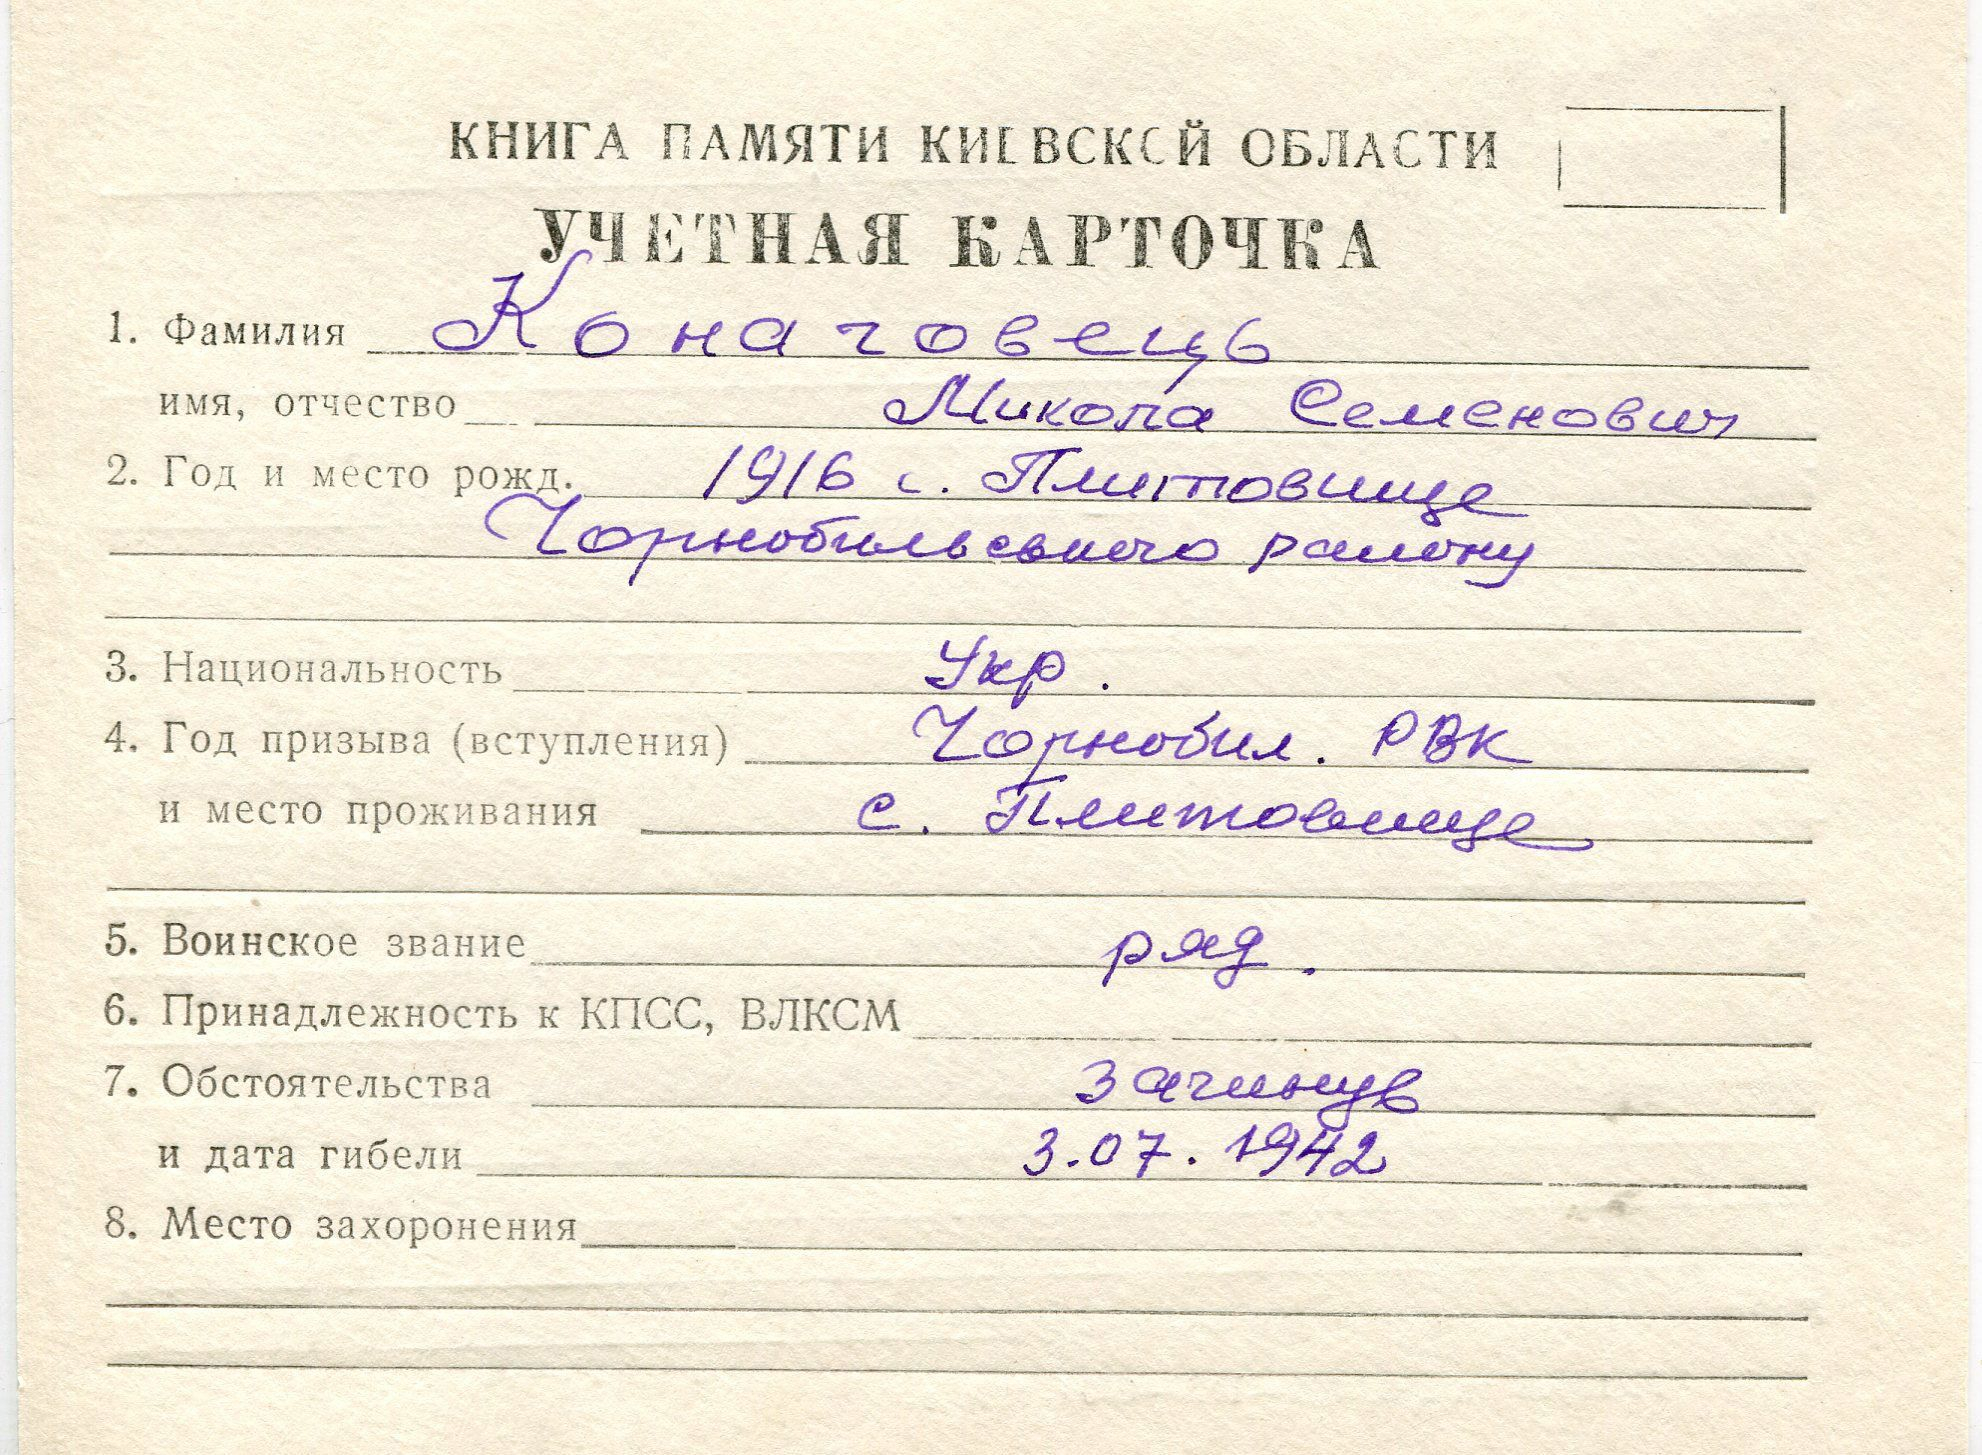 КНИГА ПАМЯТИ КИЕВСКОЙ ОБЛАСТИ
УЧЕТНАЯ КАРТОЧКА
1. Фамилия Конаговець
имя, отчество Микола Семенович
2. Год и место рожд. 1916 с. Плитовище
Чорнобильського району
3. Национальность Укр.
4. Год призыва (вступления) Чорнобил. РВК
и место проживания с. Плитовище
5. Воинское звание ряд.
6. Принадлежность к КПСС, ВЛКСМ
7. Обстоятельства загинув
и дата гибели 3.07.1942
8. Место захоронения